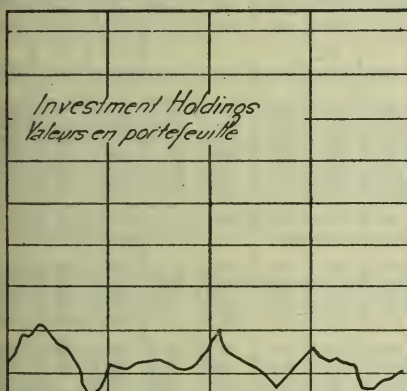 Investment Holdings
Valeurs en portefeuille